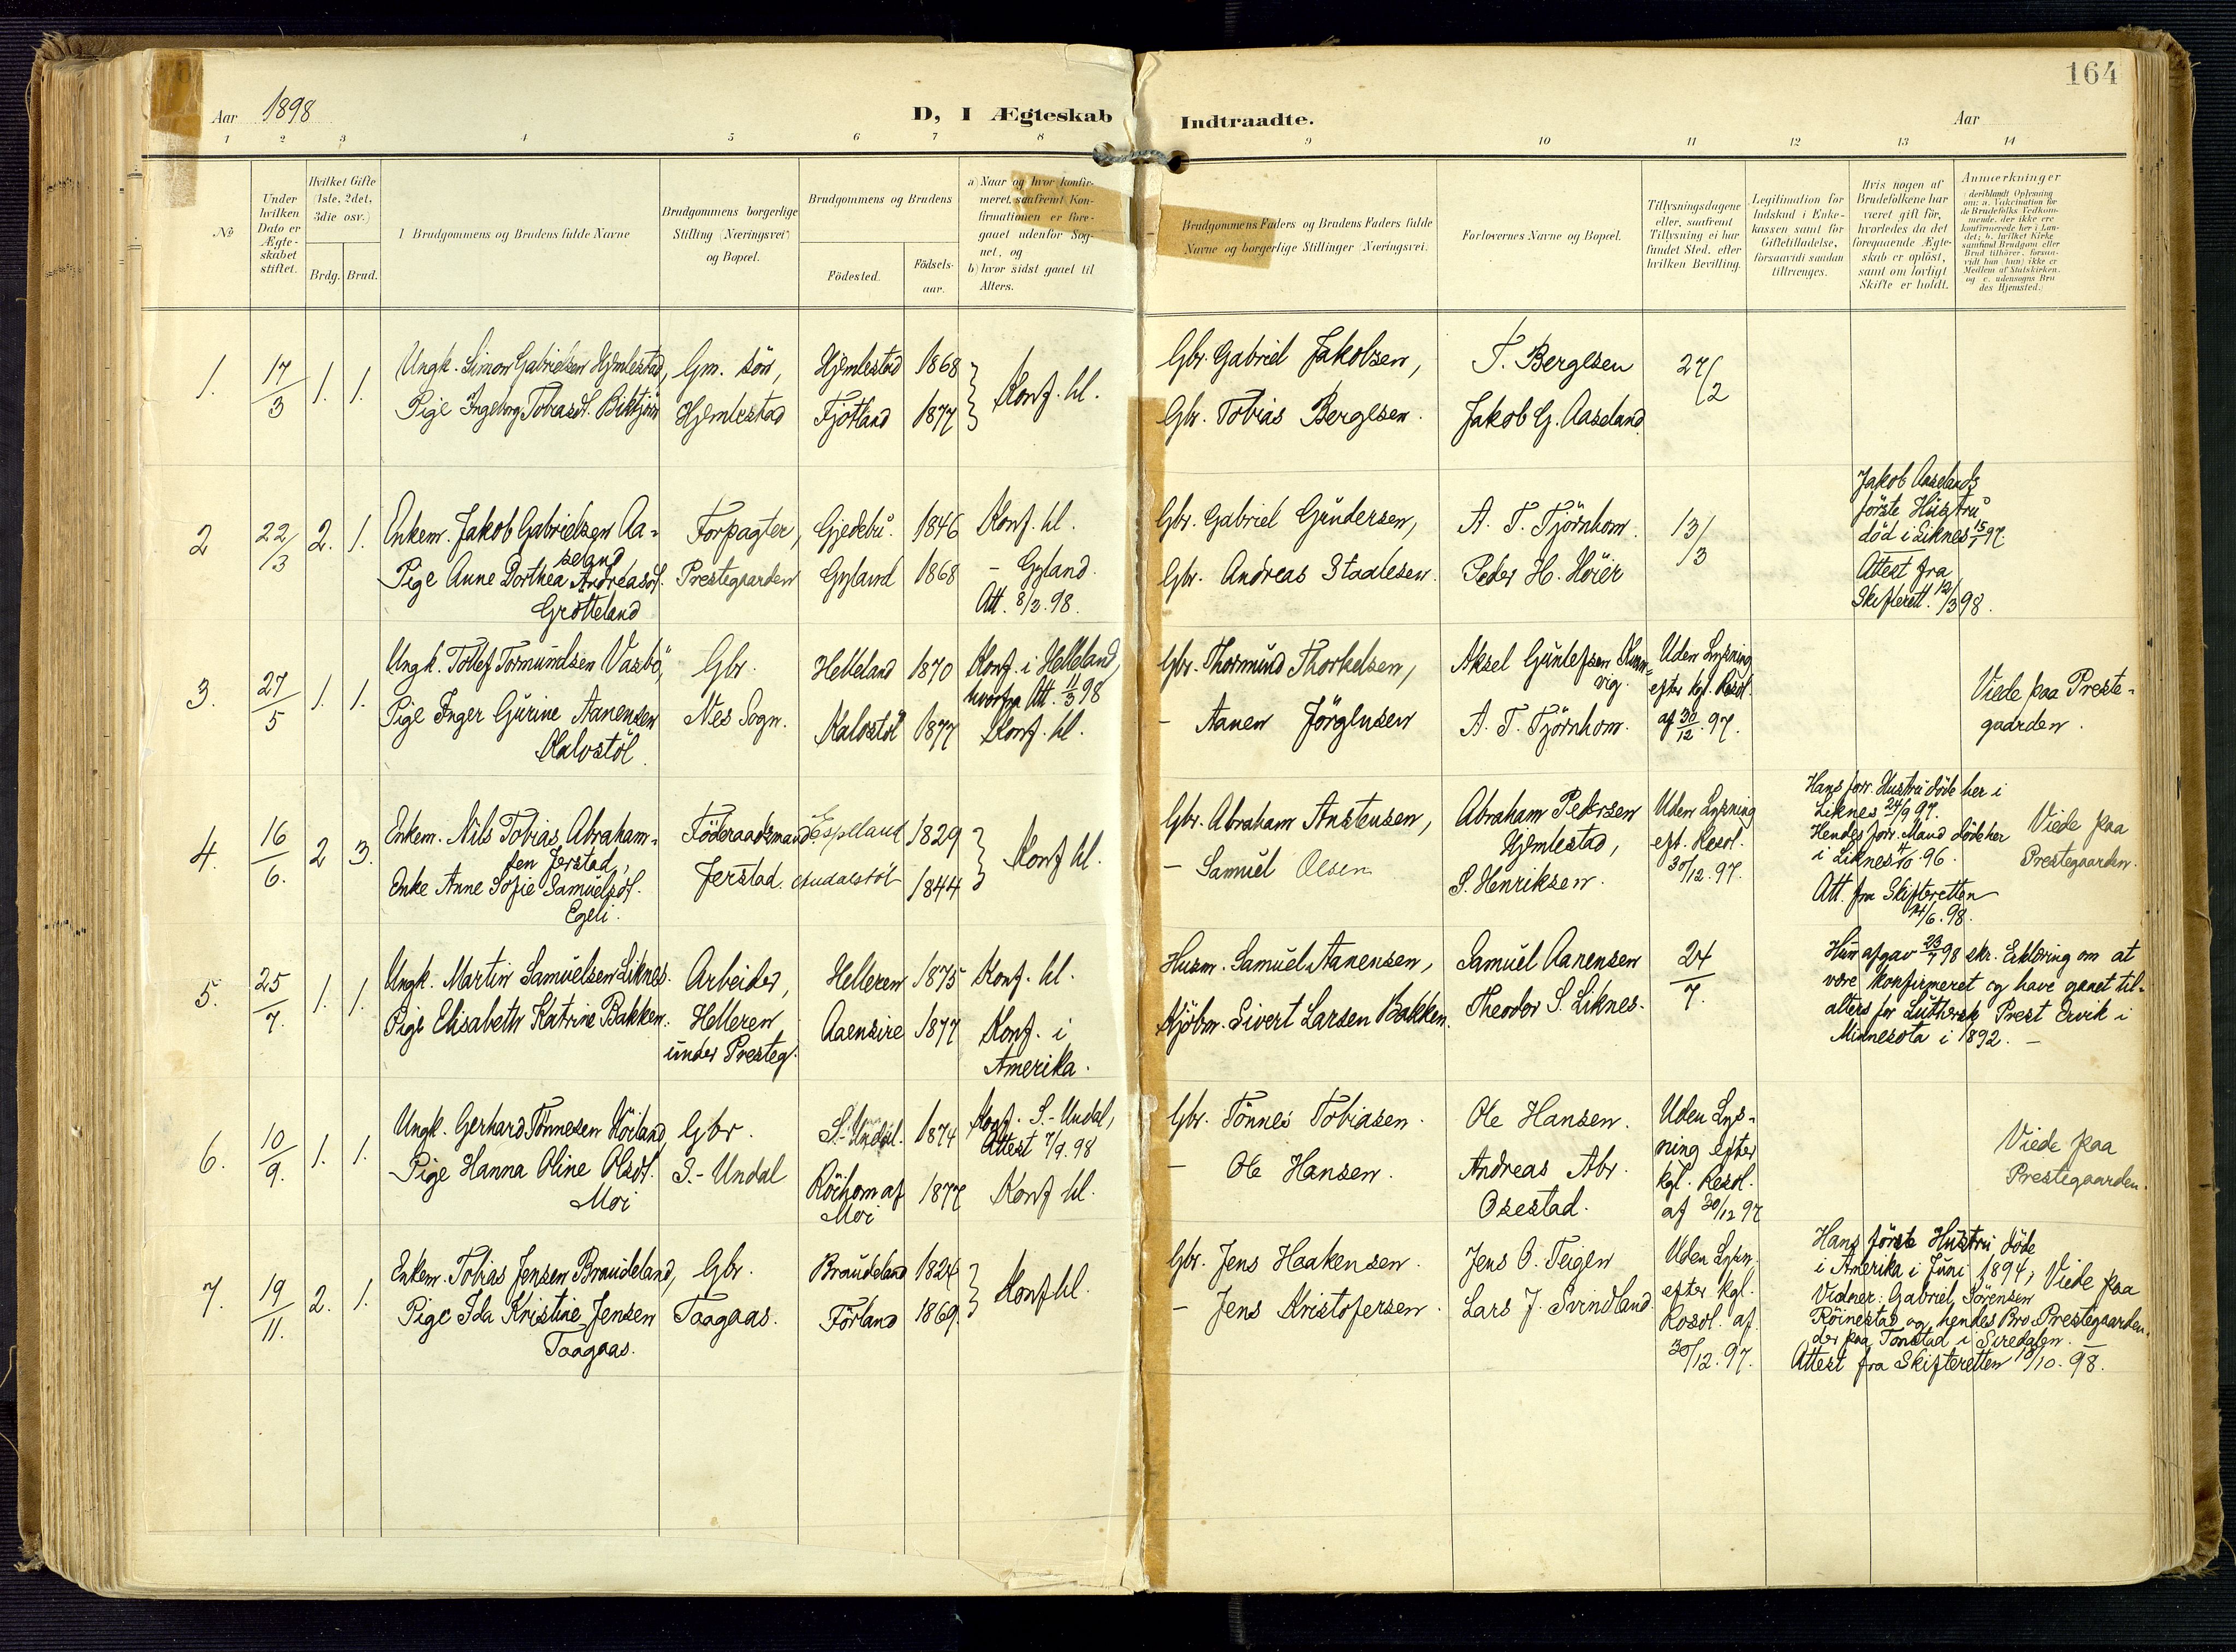 164
Aar 1898
D, I Ægteskab Indtraadte.
Aar
1 2 3 4 5 6 7 8 9 10 11 12 13 14
No
Under hvilken Dato er Ægteskabet stiftet.
Hvilket Gifte (1ste, 2det, 3die osv.)
Brdg. Brud.
Brudgommens og Brudens fulde Navne
Brudgommens borgerlige Stilling (Næringsvei) og Bopæl.
Brudgommens og Brudens
Födested.
Födselsaar.
a) Naar og hvor konfirmeret, saafremt Konfirmationen er foregaaet udenför Sognet, og
b) hvor sidst gaaet til Alters.
Brudgommens Faders og Brudens Faders fulde
Navne og borgerlige Stillinger (Næringsvei.
Forlovernes Navne og Bopæl.
Tillysningsdagene eller, saafremt Tillysning ei har fundet Sted, efter hvilken Bevilling.
Legitimation for Indskud i Enkekassen samt for Giftetilladelse, forsaavidt saadan tiltrænges.
Hvis nogen af Brudefolkene har været gift för, hvorledes da det foregaaende Ægteskab er oplöst, samt om lovligt Skifte er holdt.
Anmerkninger
1. 17/3 1. 1.
Ungk. Simon Gabrielsen Hjemlestad, Gm. sön, Hjemlestad 1868
Pige Ingeborg Tobiasdt. Biktjörn Hjemlestad Fjotland 1877
Konf. hl.
Gbr. Gabriel Jakobsen, T. Bergesen 27/2
Gbr. Tobias Bergesen. Jakob G. Aaseland.
2 22/3 2. 1.
Enkem. Jakob Gabrielsen Aa-
seland
Forpagter, Gjedebu. 1846 Konf. hl.
Pige Anne Dorthea Andreasdt.
Grötteland
Prestegaarden Gyland 1868 - Gyland.
Att. 8/3.98.
Gbr. Gabriel Gundersen, A. T. Tjörnhom. 13/3
Gbr. Andreas Staalesen. Peder H. Höier
Jakob Aaselands
förste Hustru
död i Liknes 15/1 97.
Attest fra
Skifterett. 12/3 98.
3. 27/5 1. 1.
Ungk. Tollef Tormundsen Vasbö, Gbr. Helleland 1870 Konf. i Helleland,
hvorfra Att. 11/3 98
Pige Inger Gurine Aanensen
Kalvstöl.
Nes Sogn. Kalvstöl 1877 Konf. hl.
Gbr. Thormund Thorkelsen, Aksel Gunlefsen
- Aanen Jörgensen A. T. Tjörnhom.
Uden Lysning
efter kgl. Resol.
af 30/12. 97.
Viede paa Preste-
gaarden.
4. 16/6. 2 3.
Enkem. Nils Tobias Abraham-
sen Jerstad,
Föderaadsmand. Espelland 1829
Enke Anne Sofie Samuelsdt.
Egeli.
Jerstad. 1844
Konf hl.
Gbr. Abraham Anstensen, Abraham Pedersen
Hjemlestad,
- Samuel Olsen S. Henriksen.
Uden Lysning
eft. Resol.
30/12. 97.
Hans forr. Hustru döde her i
Liknes 24/9 97.
Hendes forr. Mand döde her
i Liknes 4/10. 96.
Att. fra Skifteretten
14/6. 98.
Viede paa
Prestegaarden.
5. 25/7. 1. 1.
Ungk. Martin Samuelsen Liknes. Arbeider, Helleren 1875 Konf. hl.
Pige Elisabeth Katrine Bakken. Helleren
under Presteg. Aaensire 1877 Konf. i
Amerika.
Husm. Samuel Aanensen, Samuel Aanensen 24/7.
Kjöbm. Sivert Larsen Bakken. Theodor S. Liknes.
Hun afgav 23/7 98 skr. Erklæring om at
være konfirmeret og have gaaet til-
alters for Luthersk Prest Ervik i
Minnesota i 1892. -
6. 10/9. 1. 1.
Ungk. Gerhard Tönnesen Höiland, Gbr. S.-Undal. 1874 Konf. S.-Undal,
Attest 7/9. 98
Pige Hanna Oline Olsdt.
Moi
S.-Undal Röihom af
Moi 1877 Konf hl.
Gbr. Tönnes Tobiasen. Ole Hansen.
- Ole Hansen. Andreas Abr.
Osestad.
Uden Lys-
ning efter
kgl. Resol.
af 30/12 97
Viede paa
Prestegaarden.
7. 19/11. 2. 1.
Enkem. Tobias Jensen Braudeland, Gbr. Braudeland 1824
Pige Ida Kristine Jensen
Taagaas.
Taagaas. Förland 1869.
Konf hl.
Gbr. Jens Haakensen. Jens O. Teigen
- Jens Kristofersen. Lars J. Svindland.
Uden Lysn.
efter kgl.
Resol. af
30/12. 97.
Hans förste Hustru döde
i Amerika i Juni 1894;
Vidner: Gabriel Sörensen
Röinestad og hendes Bro-
der paa Tonstad i Siredalen.
Attest fra Skifteretten 18/10. 98.
Viede paa
Prestegaarden.